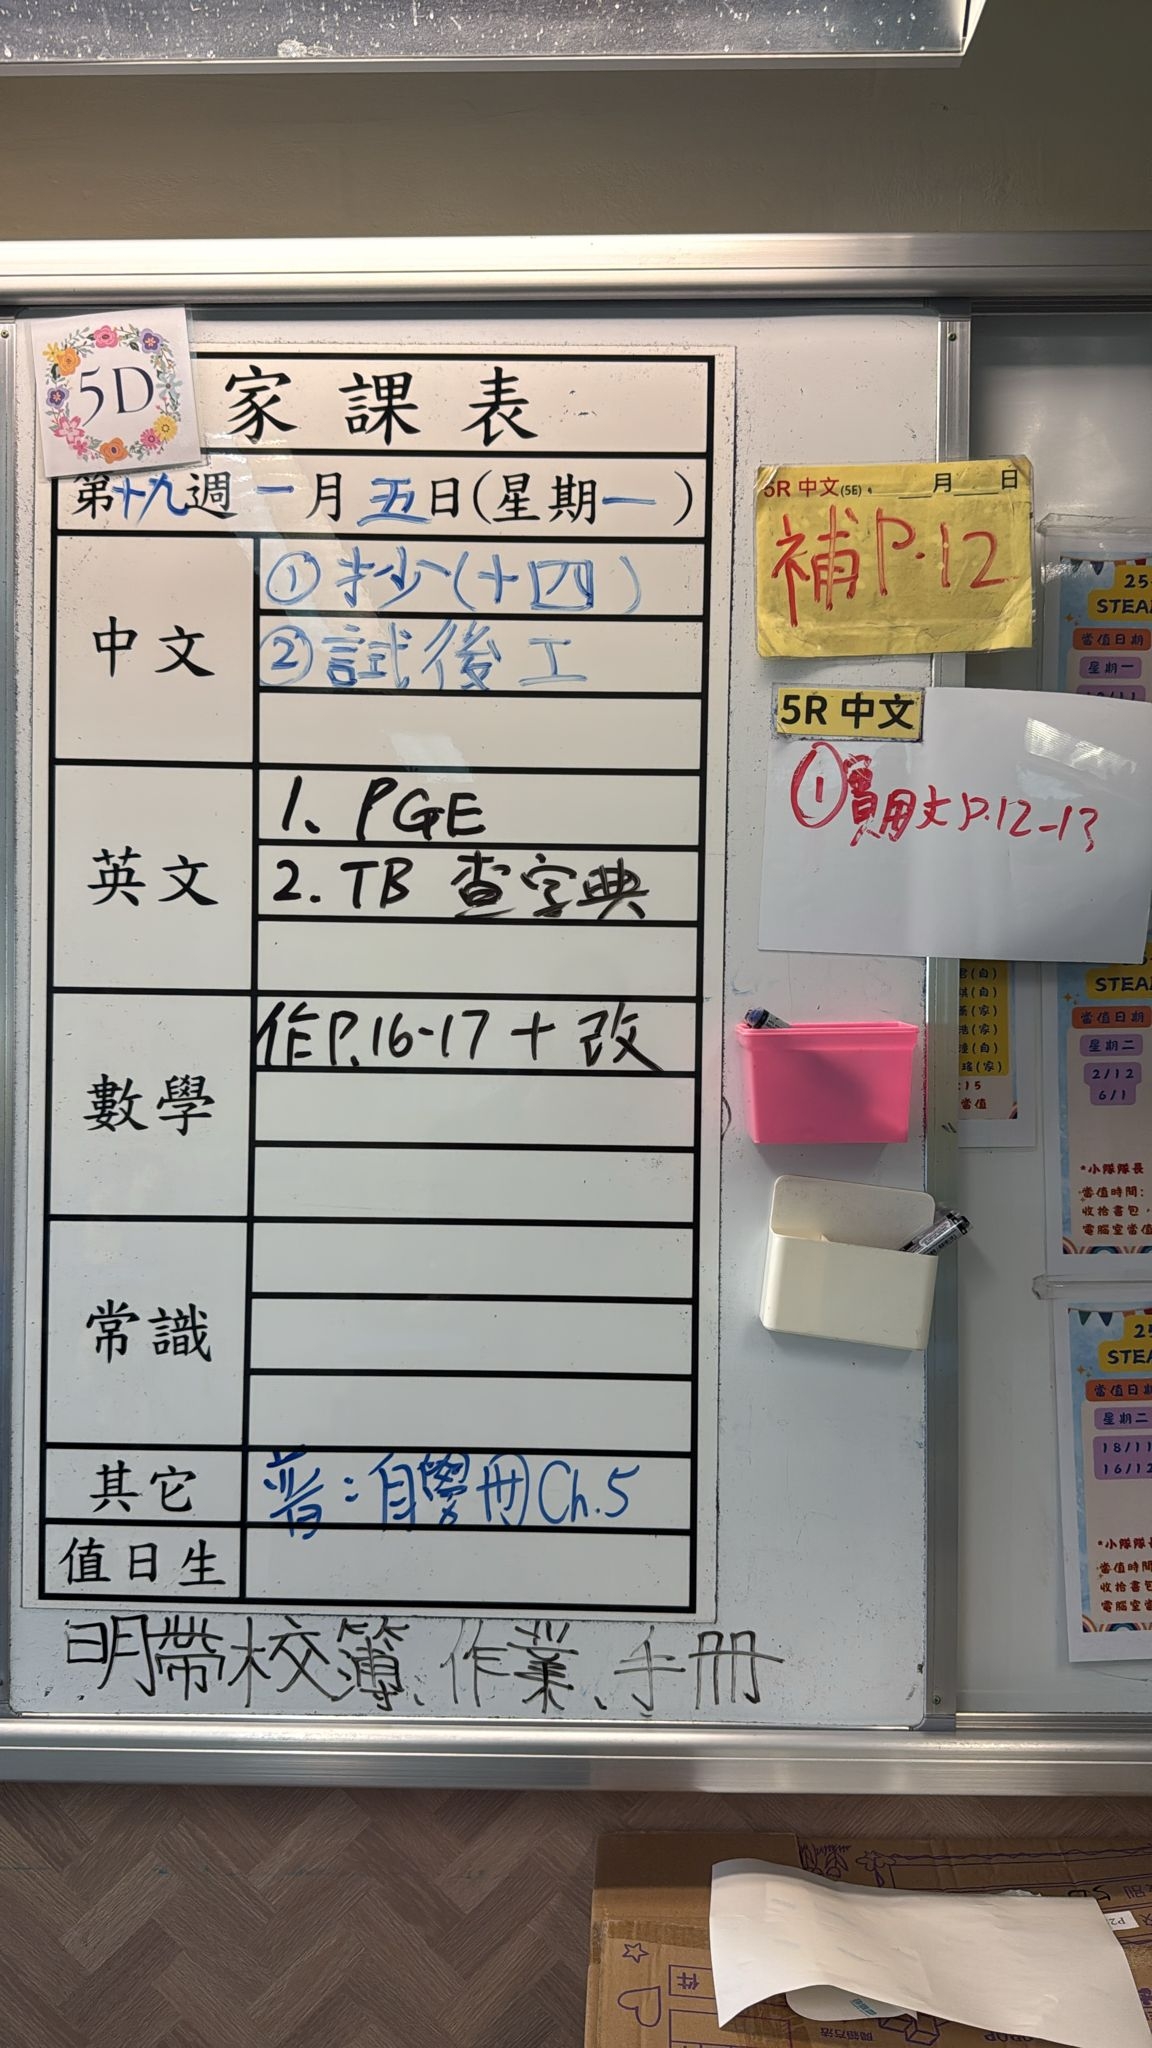 5D
家課表
第十九週 一月五日(星期一)
中文
①抄(十四)
②試後工
英文
1. PGE
2. TB 查字典
數學
作P.16-17 + 改
常識
其它
普:自學冊Ch.5
值日生
明帶校簿、作業、手冊
5R 中文(5E) 月 日
補P.12
5R 中文
①實用文P.12-13
(自)
(自)
(家)
(家)
(自)
(家)
當值
25
STEA
當值日期
星期一
STEA
當值日期
星期二
2/12
6/1
*小隊隊長
當值時間:
收拾書包,
電腦室當值
STEA
當值日期
星期二
18/11
16/12
*小隊隊長
當值時間
收拾書包
電腦室當
件